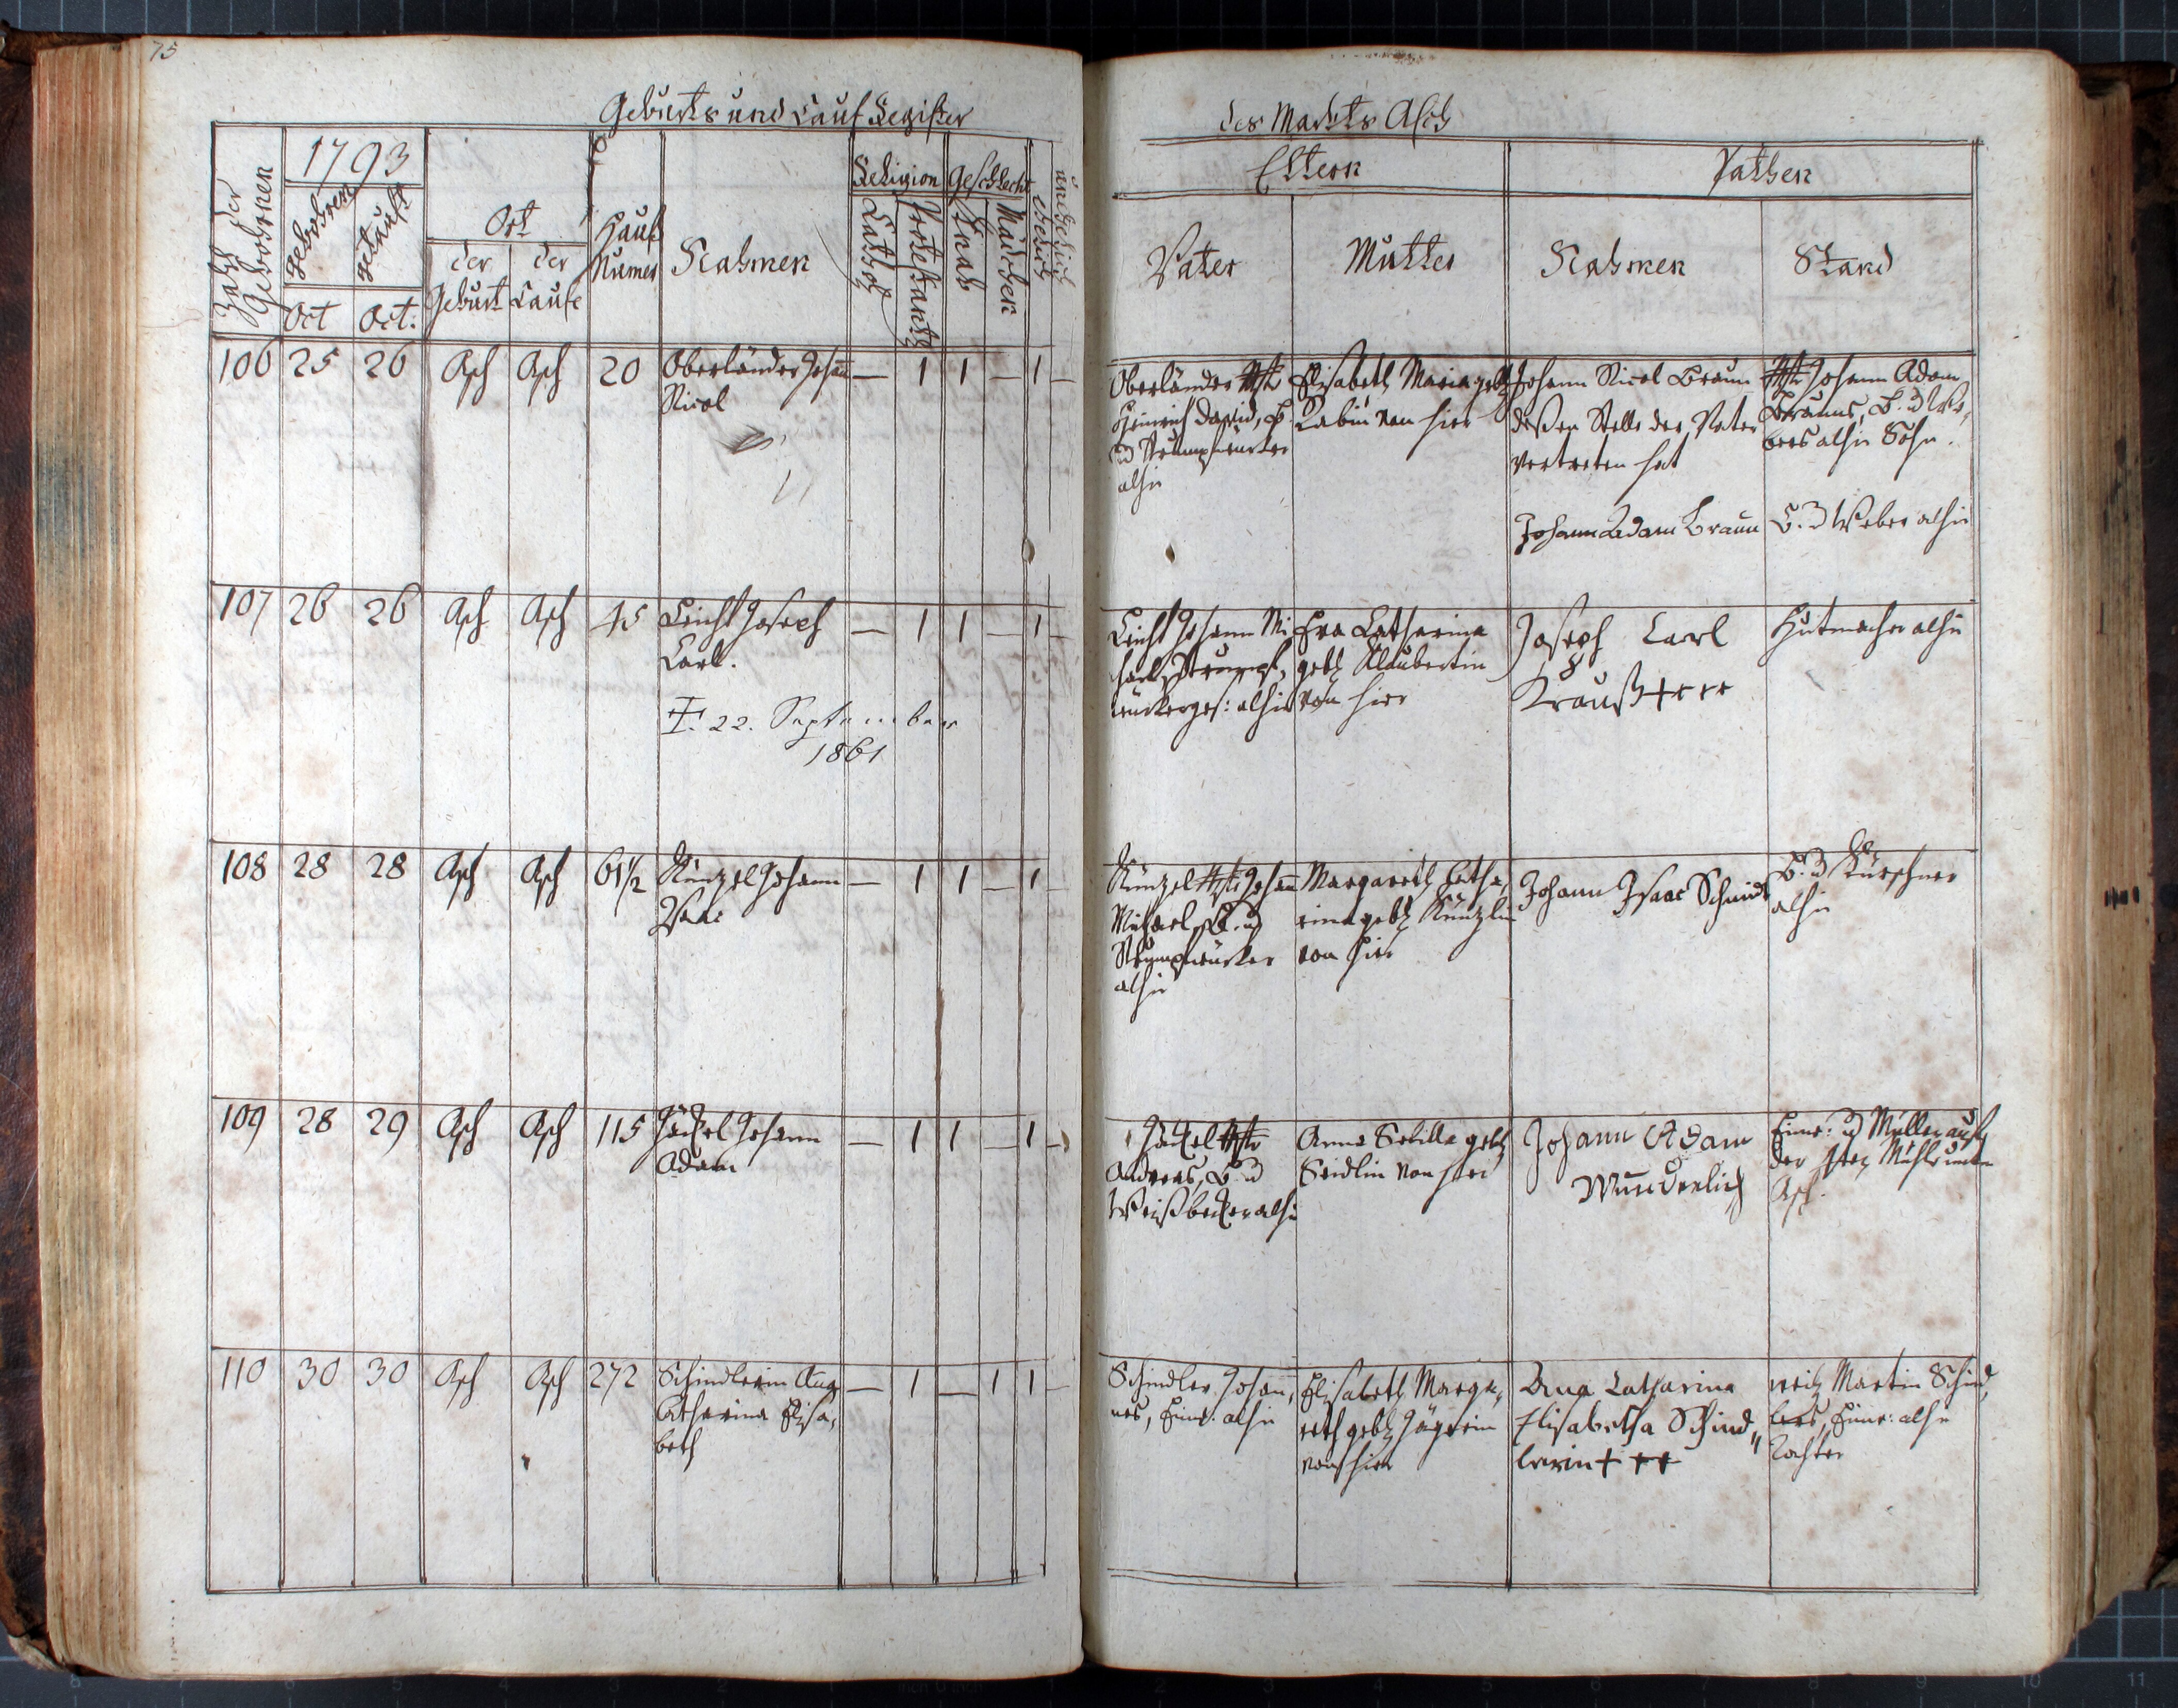 75
Geburts und Tauf Register
des Markts Asch
Zahl der Gebohrnen
1793
gebohren
getauft
Oct
Oct.
Ort
der Geburt
der Taufe
Hauß Numer
Nahmen
Religion
Cathol
Protestant
Geschlecht
Knab
Mädchen
ehelich
unehelich
Eltern
Pathen
Vater
Mutter
Nahmen
Stand
106 25 26 Asch Asch 20 Oberländer Johann — 1 1 — 1 —
Nicol
Oberländer Mstr
Heinrich David, B.
u Strumpfwürker
alhir
Elisabeth Maria geb
Labin von hier
Johann Nicol Braun
deßen Stelle der Vater
vertreten hat
Johann Adam Braun
Mstr Johann Adam
Brauns, B. u We,
bers alhir Sohn.
B. u Weber alhir
107 26 26 Asch Asch 45 Leicht Joseph — 1 1 — 1 —
Carl.
†. 22. September
1861
Leicht Johann Mi
chael, Strumpf,
würkerges: alhir
Eva Catharina
geb Klaubertin
von hier
Joseph Carl
Krauß +++
Hutmacher alhir
108 28 28 Asch Asch 61½ Künzel Johann — 1 1 — 1
Künzel Mstr Johann
Michael, B. u
Strumpfwürker
alhir
Margareth Catha,
rina geb Künzlin
von hier
Johann Isaac Schmidt
B. u Kürschner
alhir
109 28 29 Asch Asch 115 Jäckel Johann — 1 1 — 1 —
Adam
Jäckel Mstr
Andreas, B. u
Weißbecker alhir
Anna Sibilla geb
Seidlin von hier
Johann Adam
Wunderlich
Einw: u Müller auf
der Mühl unter
Asch.
110 30 30 Asch Asch 272 Schindlerin Ana — 1 — 1 1
Catharina Elisa,
beth
Schindler Johan,
nes, Einw: alhir
Elisabeth Marga,
reth geb Jägerin
von hier
Anna Catharina
Elisabetha Schind„
lerin +++
Martin Schind,
lers, Einw: alhir
Tochter